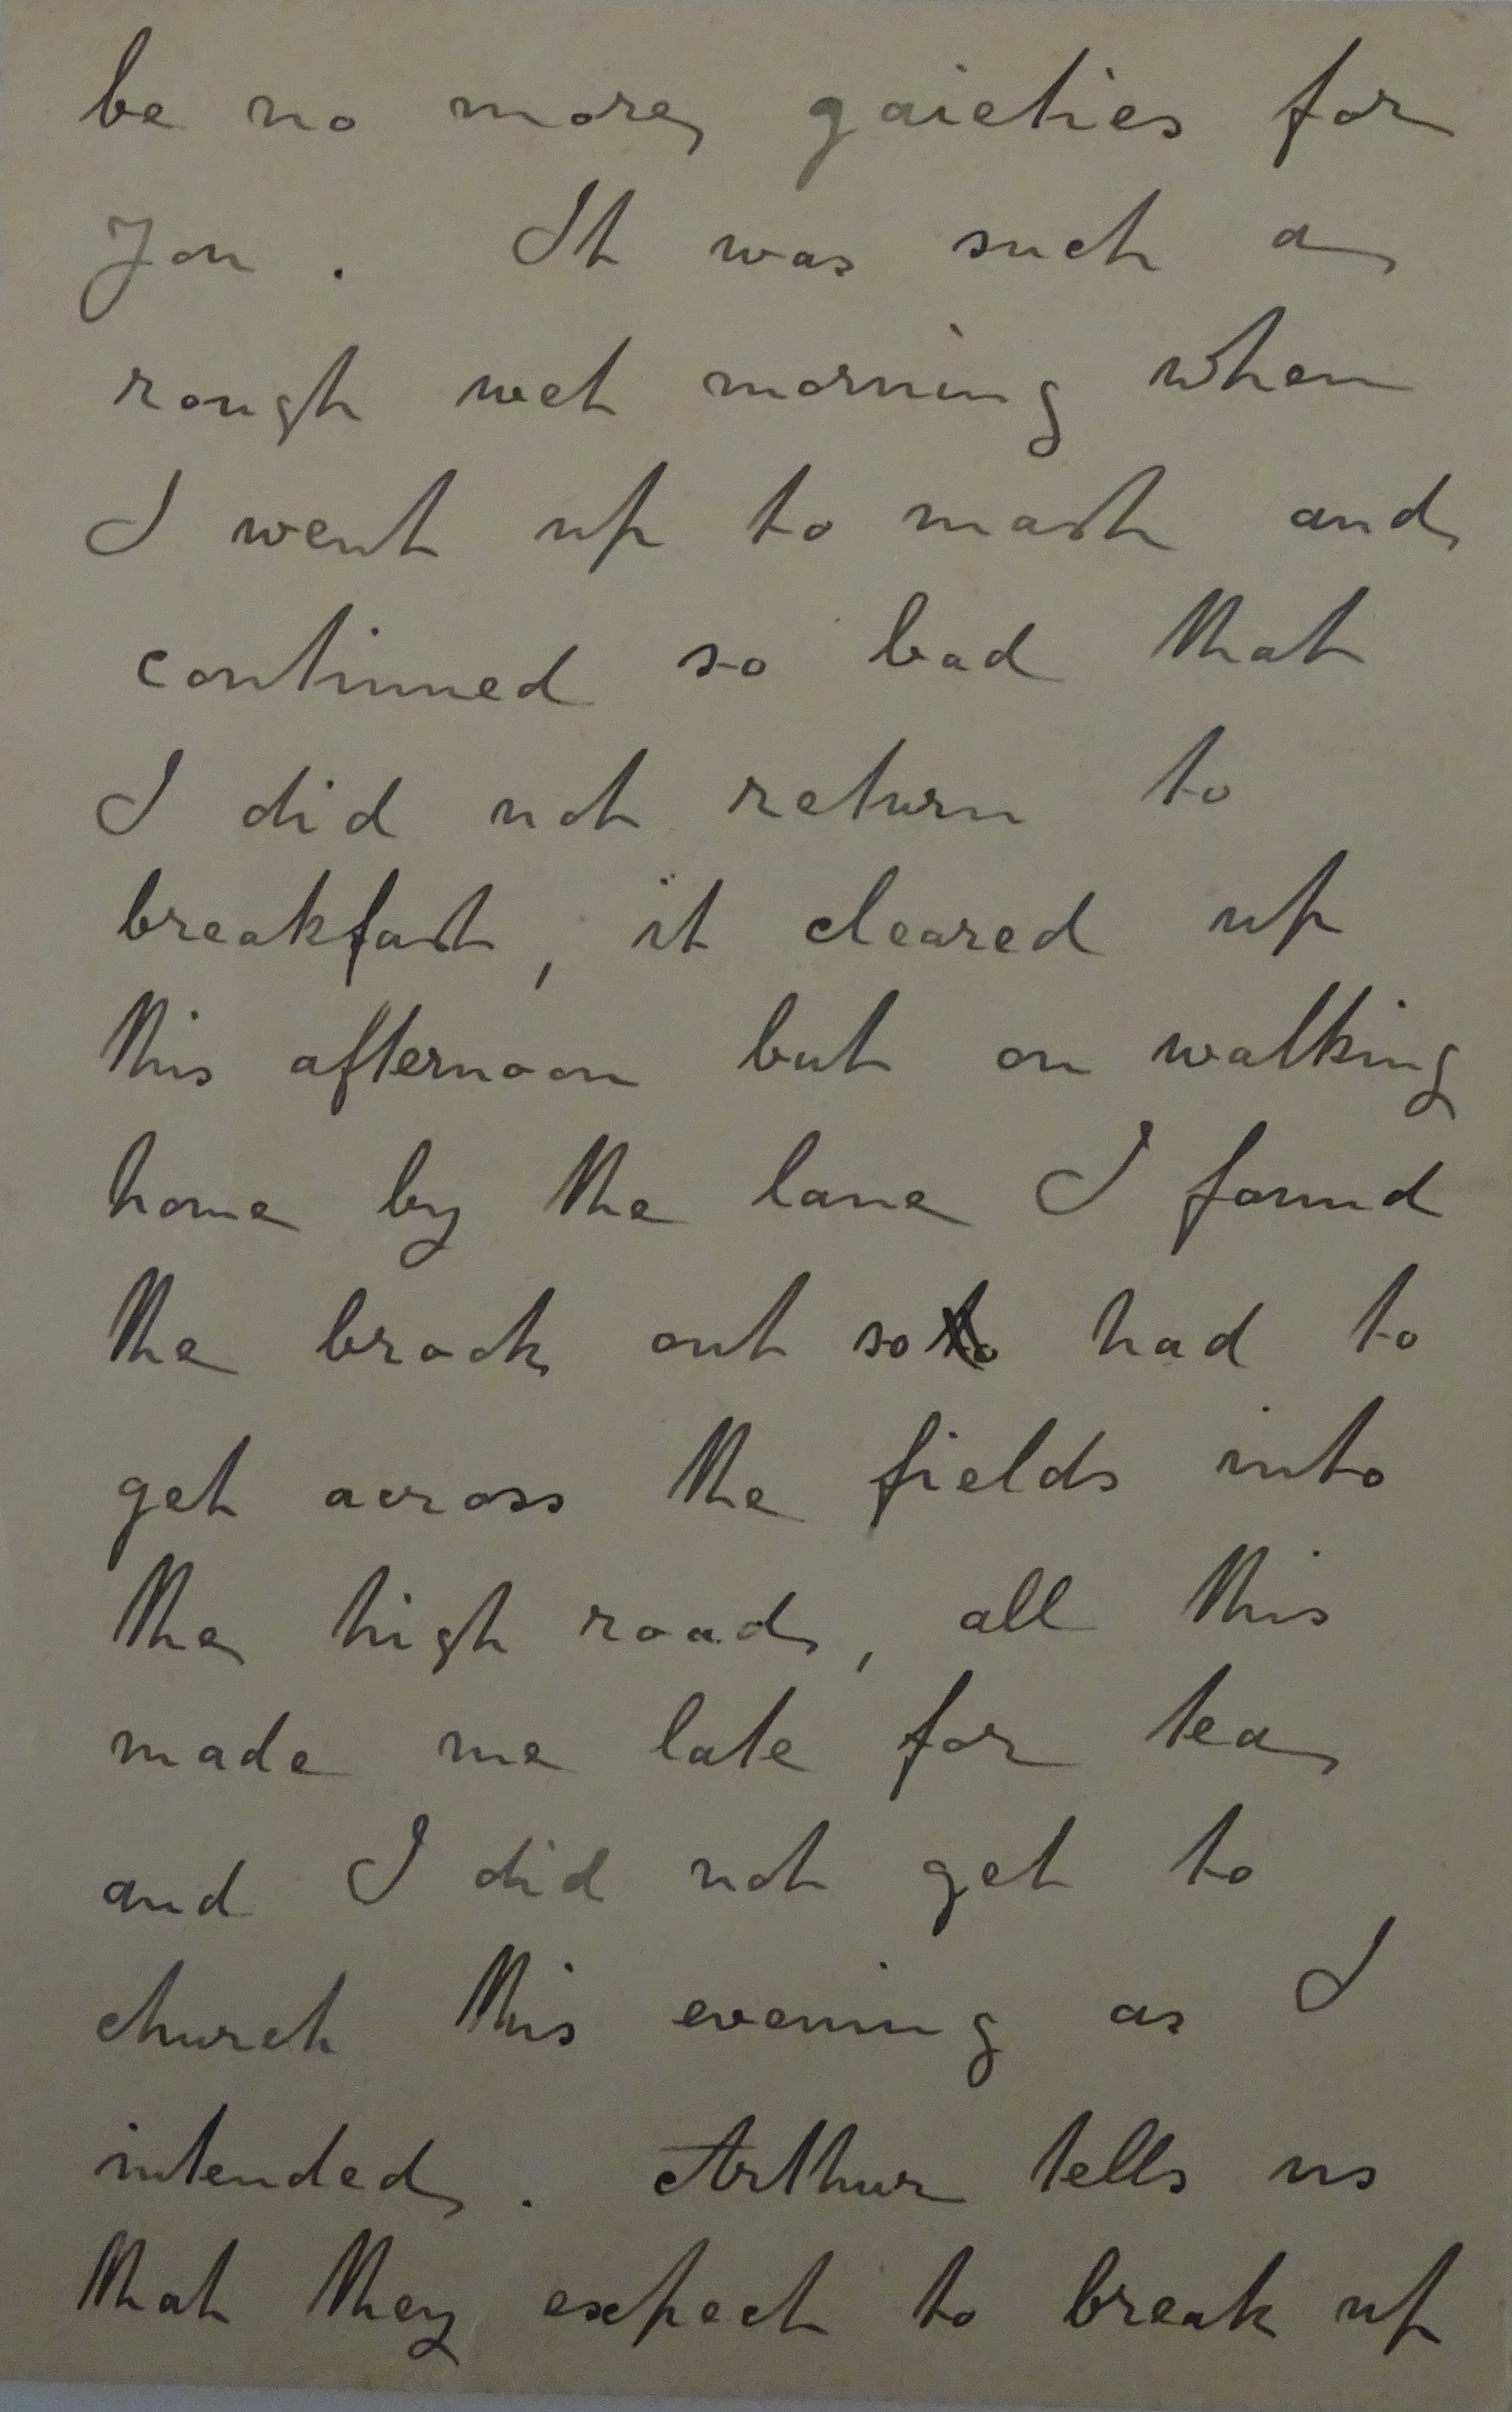 be no more gaieties for
you. It was such a
rough wet morning when
I went up to mash and
continued so bad that
I did not return to
breakfast, it cleared up
this afternoon but on walking
home by the lane I found
the brook out so had to
get across the fields into
the high road, all this
made me late for tea
and I did not get to
church this evening as I
intended. Arthur tells us
that they expect to break up